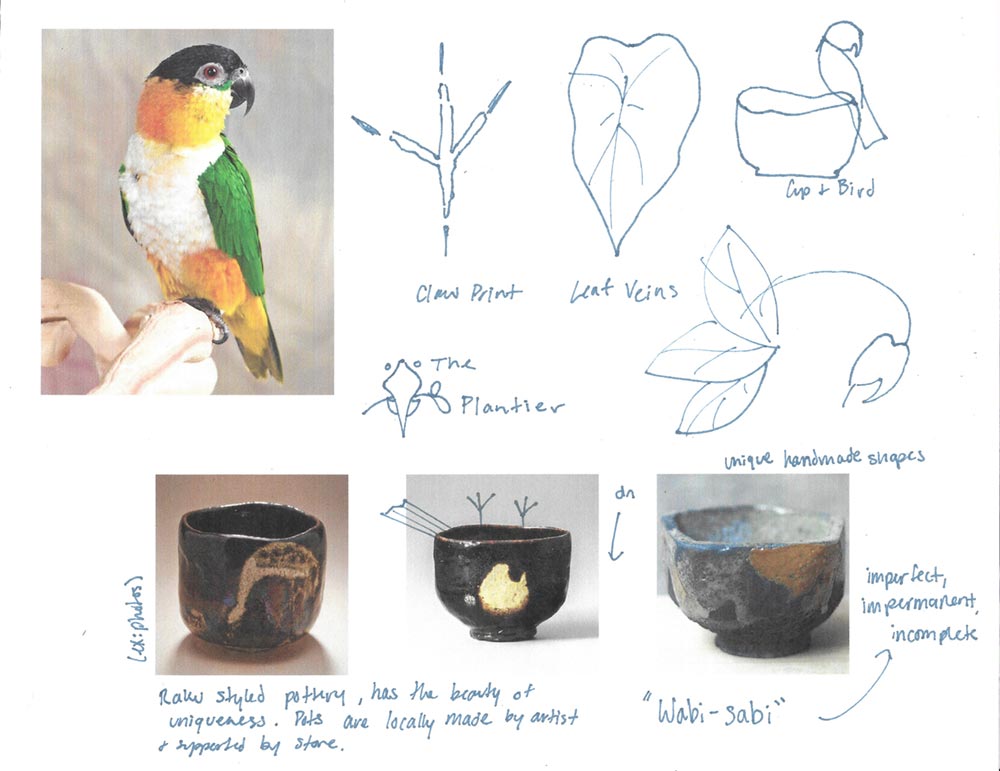 Cup + Bird
Claw Print
Leaf Veins
The
Plantier
unique handmade shapes
(ex: photos)
dn
imperfect,
impermanent,
incomplete
Raku styled pottery, has the beauty of
uniqueness. Pots are locally made by artist
+ supported by store.
"Wabi-sabi"